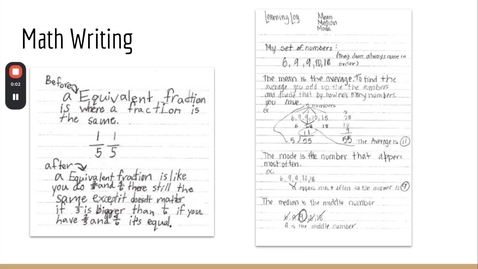 Math Writing
0:02
Before
a Equivalent fraction
is where a fraction is
the same.
1 1
5 5
after
a Equivalent fraction is like
you do and there still the
same except it doesnt matter
if is bigger than if you
have and it's equal.
learning Log
Mean
Median
Mode
My set of numbers:
6, 9, 9, 10, 18
The mean is the average. To find the
average you add up the numbers
and divide that by how many numbers
you have.
ex
numbers
6, 9, 9, 10, 18
11
5 55
55
The Average is 11
The mode is the number that appers
most often.
ex:
6, 9, 9, 10, 18
9 appers most often so the answer is 9
The median is the middle number
9 is the middle number